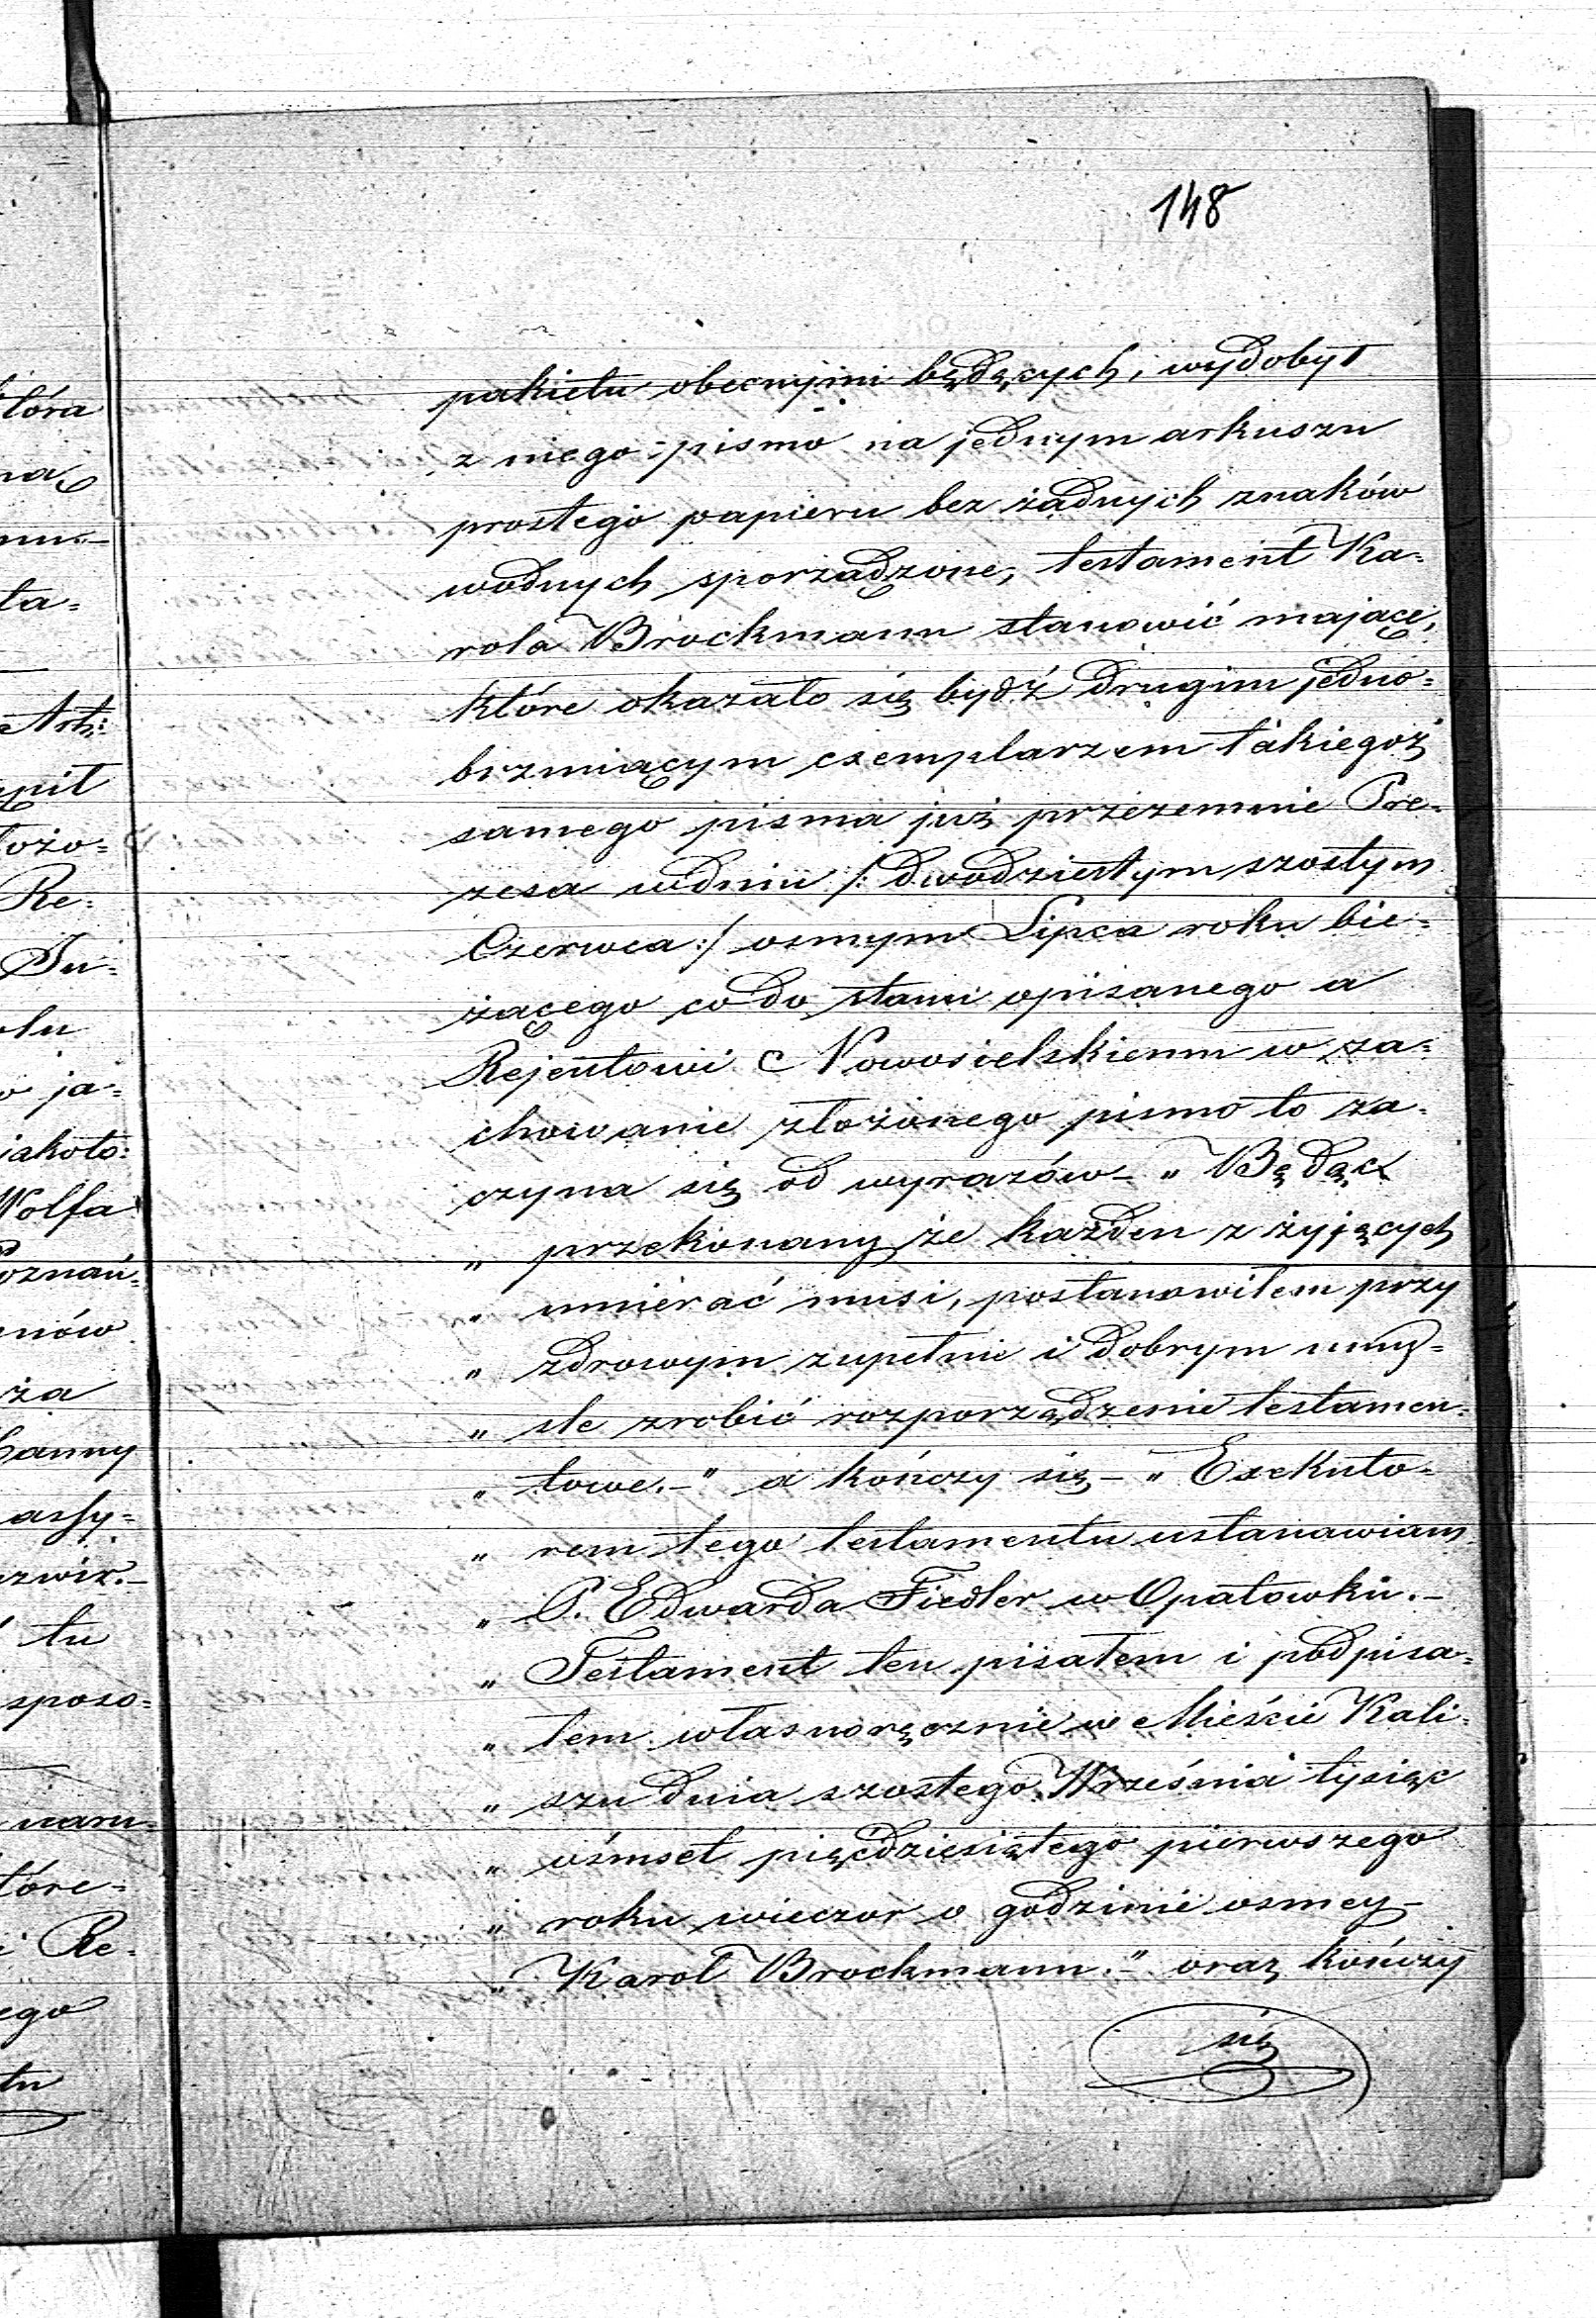 148
pakietu obecnymi będących, wydobył
z niego pismo na jednym arkuszu
prostego papieru bez żadnych znaków
wodnych sporządzone, testament Ka=
rola Brockmann stanowić mające,
które okazało się bydź drugim jedno=
brzmiącym exemplarzem takiegoż
samego pisma już przezemnie Pre=
zesa w dniu /: dwudziestym szostym
Czerwca :/ osmym Lipca roku bie=
żącego co do stanu opisanego a
Rejentowi Nowosielskiemu w za=
chowanie złożonego pismo to za=
czyna się od wyrazów – „ Będąc
„ przekonany że każden z żyjących
„ umierać musi, postanowiłem przy
„ zdrowym zupełnie i dobrym umy=
„ śle zrobić rozporządzenie testamen=
„ towe. –" a kończy się – „ Exekuto=
„ rem tego testamentu ustanawiam
„ P. Edwarda Fiedler w Opatowku. –
„ Testament ten pisałem i podpisa=
„ łem własnoręcznie w Mieście Kali=
„ szu dnia szostego Września tysiąc
„ ośmset pięćdziesiątego pierwszego
„ roku wieczor o godzinie osmey –
„ Karol Brockmann." oraz kończy
się
tóra
ną
ta=
Art:
ąpił
łożo=
Re=
Ju=
ja=
jakoto:
Wolfa
oznań=
nów
ża
Hanny
assy=
tu
sposo=
waru=
tóre=
i Re=
ego
tu